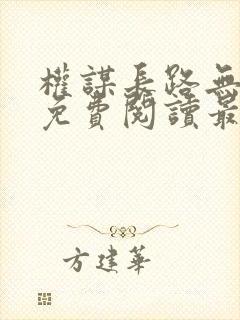 權謀長路無
免費閱讀最
方建華